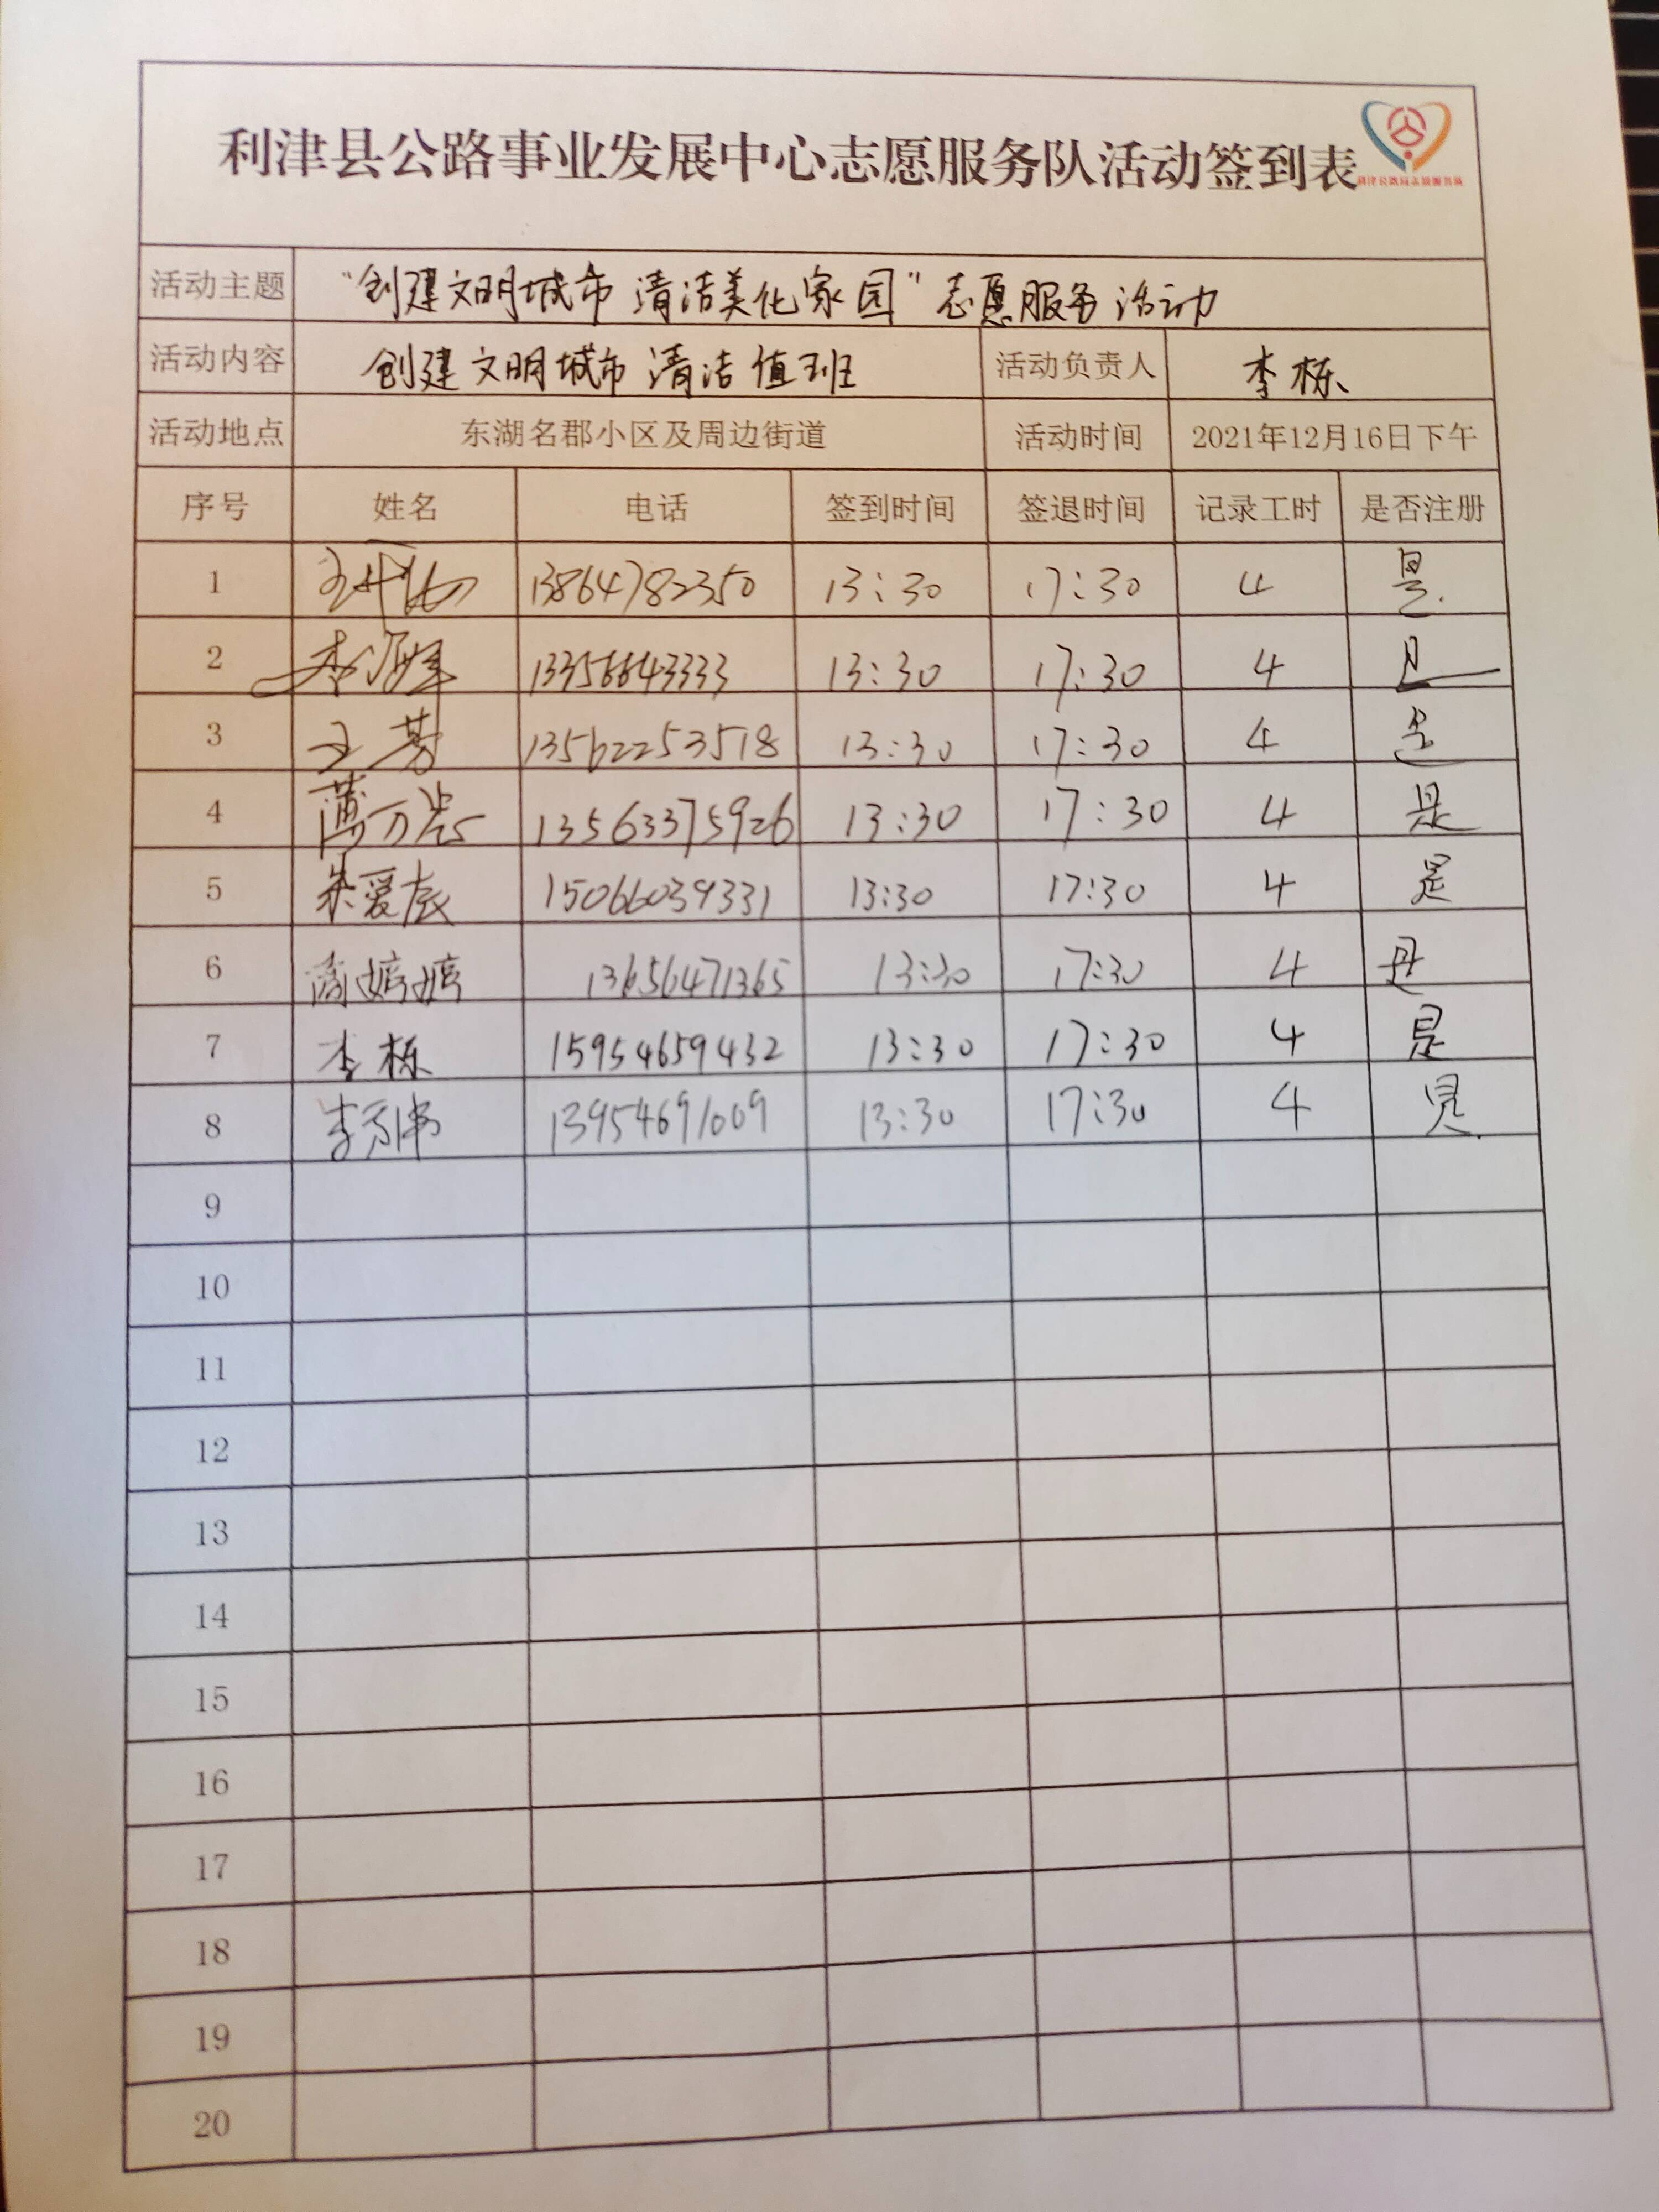 利津县公路事业发展中心志愿服务队活动签到表
利津公路局志愿服务队
活动主题 "创建文明城市 清洁美化家园"志愿服务活动
活动内容 创建文明城市清洁值班 活动负责人 李栋
活动地点 东湖名郡小区及周边街道 活动时间 2021年12月16日下午
序号 姓名 电话 签到时间 签退时间 记录工时 是否注册
1 13864782350 13:30 17:30 4 是
2 李海峰 13356643333 13:30 17:30 4 是
3 王芳 13562253518 13:30 17:30 4 是
4 薄万岩 13563375926 13:30 17:30 4 是
5 朱爱辰 15066039331 13:30 17:30 4 是
6 商婷婷 13656471365 13:30 17:30 4 是
7 李栋 15954659432 13:30 17:30 4 是
8 李方伟 13954691009 13:30 17:30 4 是
9
10
11
12
13
14
15
16
17
18
19
20